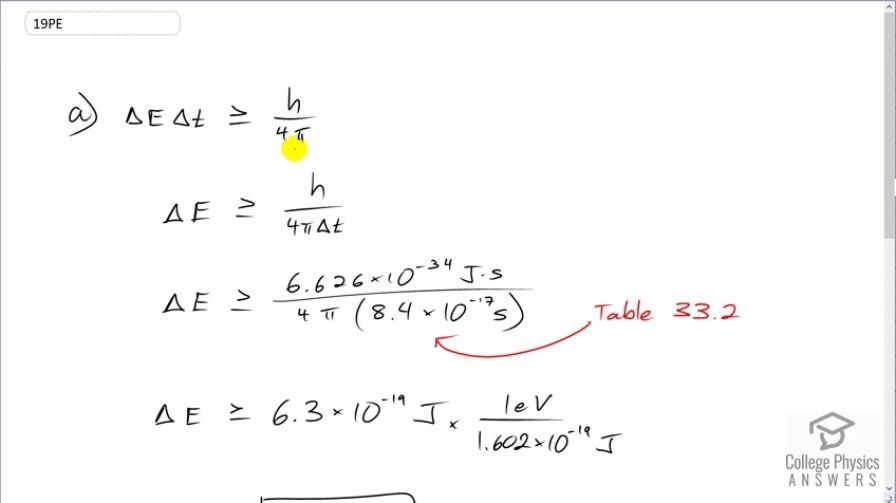 19PE
a) ΔE Δt ≥ h/4π
ΔE ≥ h/4πΔt
ΔE ≥ 6.626×10⁻³⁴ J·s/4π (8.4×10⁻¹⁷s)
Table 33.2
ΔE ≥ 6.3×10⁻¹⁹ J × 1eV/1.602×10⁻¹⁹ J
College Physics
ANSWERS